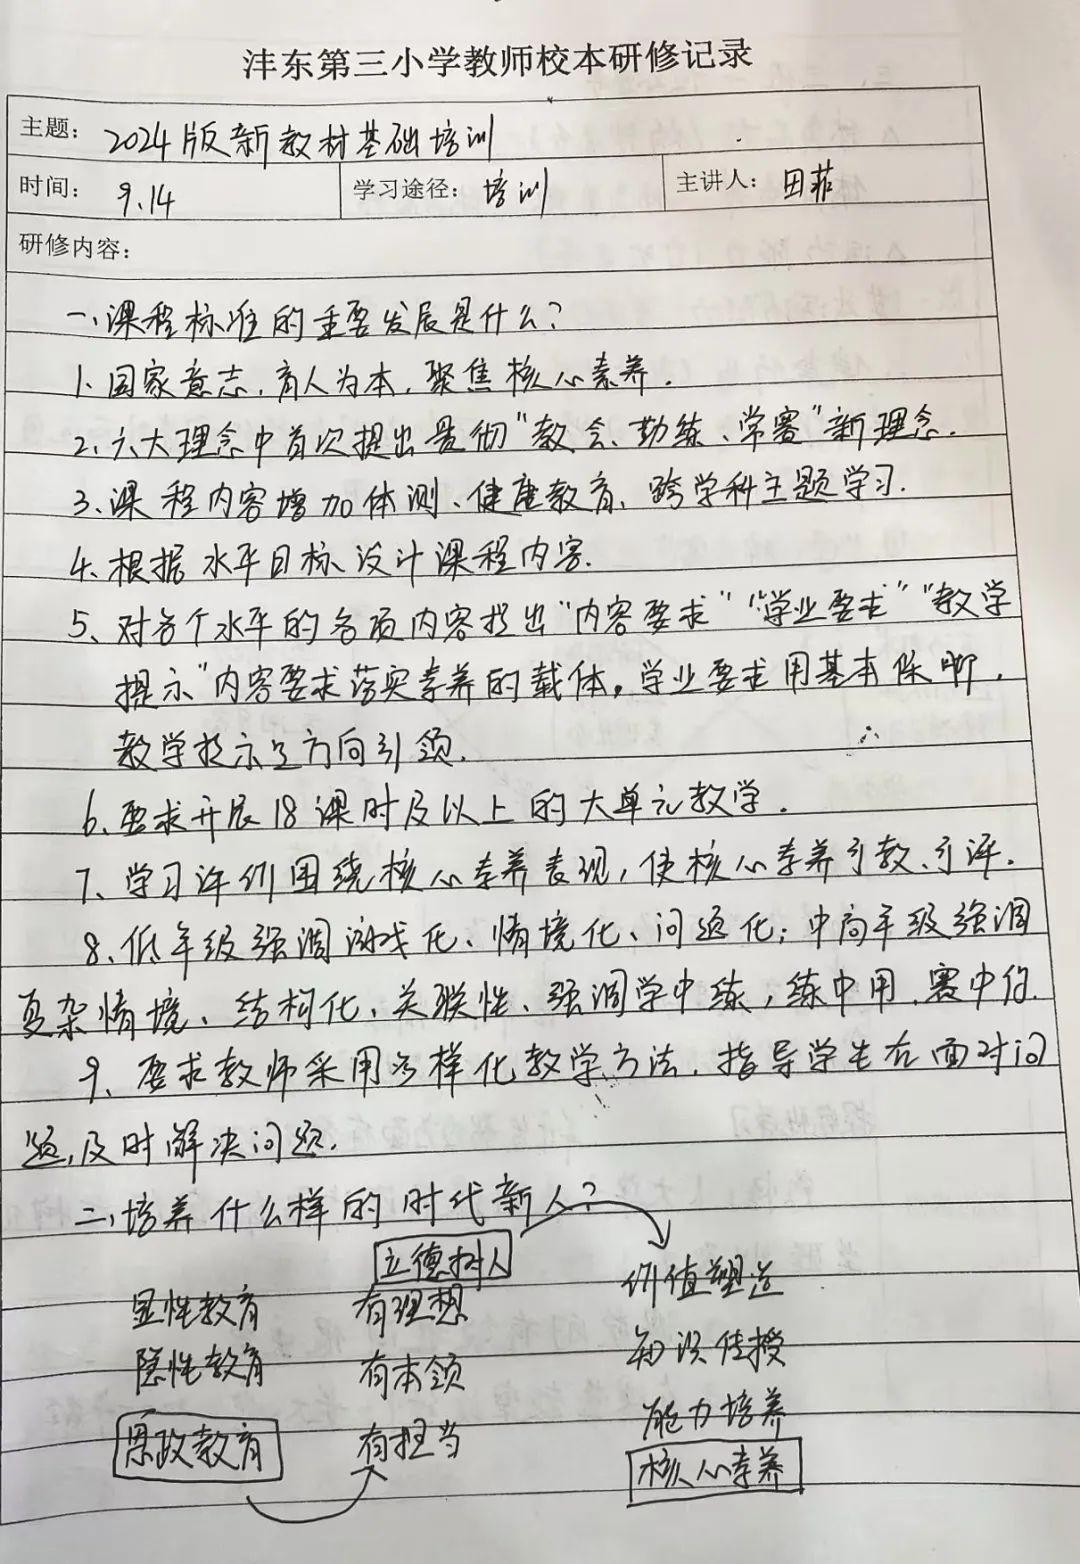 沣东第三小学教师校本研修记录
主题：2024版新教材基础培训
时间：9.14 学习途径：培训 主讲人：田菲
研修内容：
一、课程标准的重要发展是什么?
1、国家意志,育人为本,聚焦核心素养.
2、六大理念中首次提出贯彻“教会、勤练、常赛”新理念.
3、课程内容增加体测、健康教育、跨学科主题学习.
4、根据水平目标设计课程内容.
5、对各个水平的各项内容提出“内容要求”“学业要求”“教学
提示”内容要求落实素养的载体。学业要求用基本保
教学提示是方向引领.
6、要求开展18课时及以上的大单元教学.
7、学习评价围绕核心素养表现,使核心素养引教、引评.
8、低年级强调游戏化、情境化、问题化;中高年级强调
复杂情境、结构化、关联性、强调学中练,练中用,赛中
9、要求教师采用多样化教学方法,指导学生在面对问
题,及时解决问题.
二、培养什么样的时代新人?
立德树人
显性教育 有理想 价值塑造
隐性教育 有本领 知识传授
思政教育 有担当 能力培养
核心素养